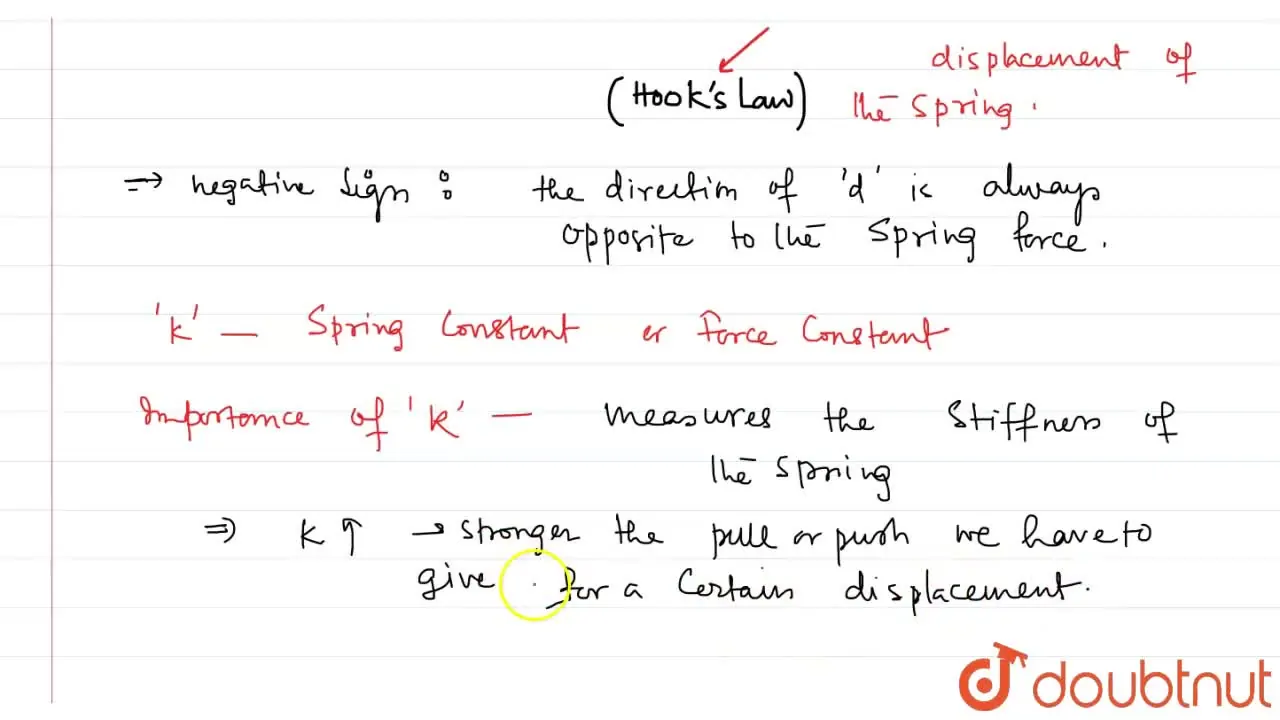 displacement of
(Hook's Law) the spring.
⇒ negative sign : the direction of 'd' is always
opposite to the spring force.
'k' — Spring Constant or force Constant
Importance of 'k' — measures the stiffness of
the spring
⇒ k ↑ → stronger the pull or push we have to
give for a certain displacement.
doubtnut